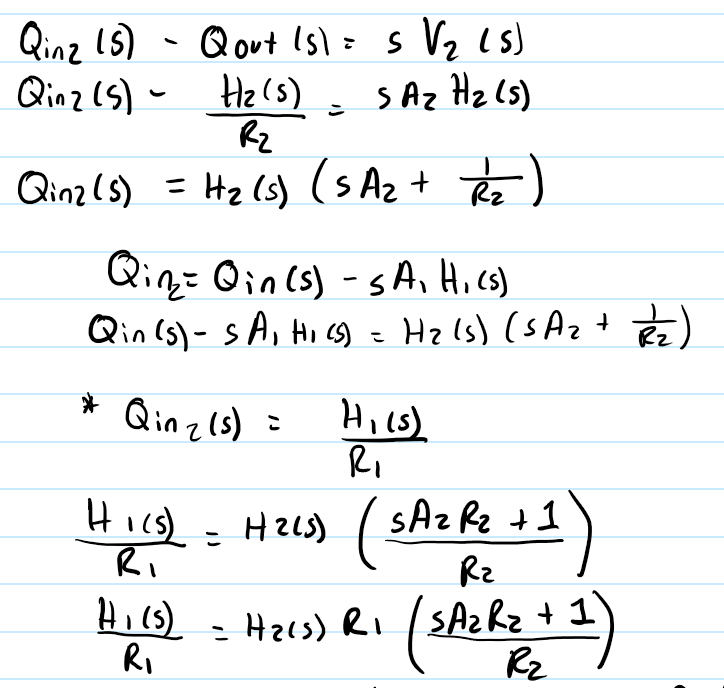 Qin2 (s) - Qout (s) = s V2 (s)
Qin2 (s) - H2(s)/R2 = s A2 H2(s)
Qin2(s) = H2(s) (s A2 + 1/R2)
Qin2 = Qin(s) - s A1 H1(s)
Qin(s) - s A1 H1(s) = H2(s) (s A2 + 1/R2)
* Qin2(s) = H1(s)/R1
H1(s)/R1 = H2(s) ((sA2R2 + 1)/R2)
H1(s)/R1 = H2(s) R1 ((sA2R2 + 1)/R2)